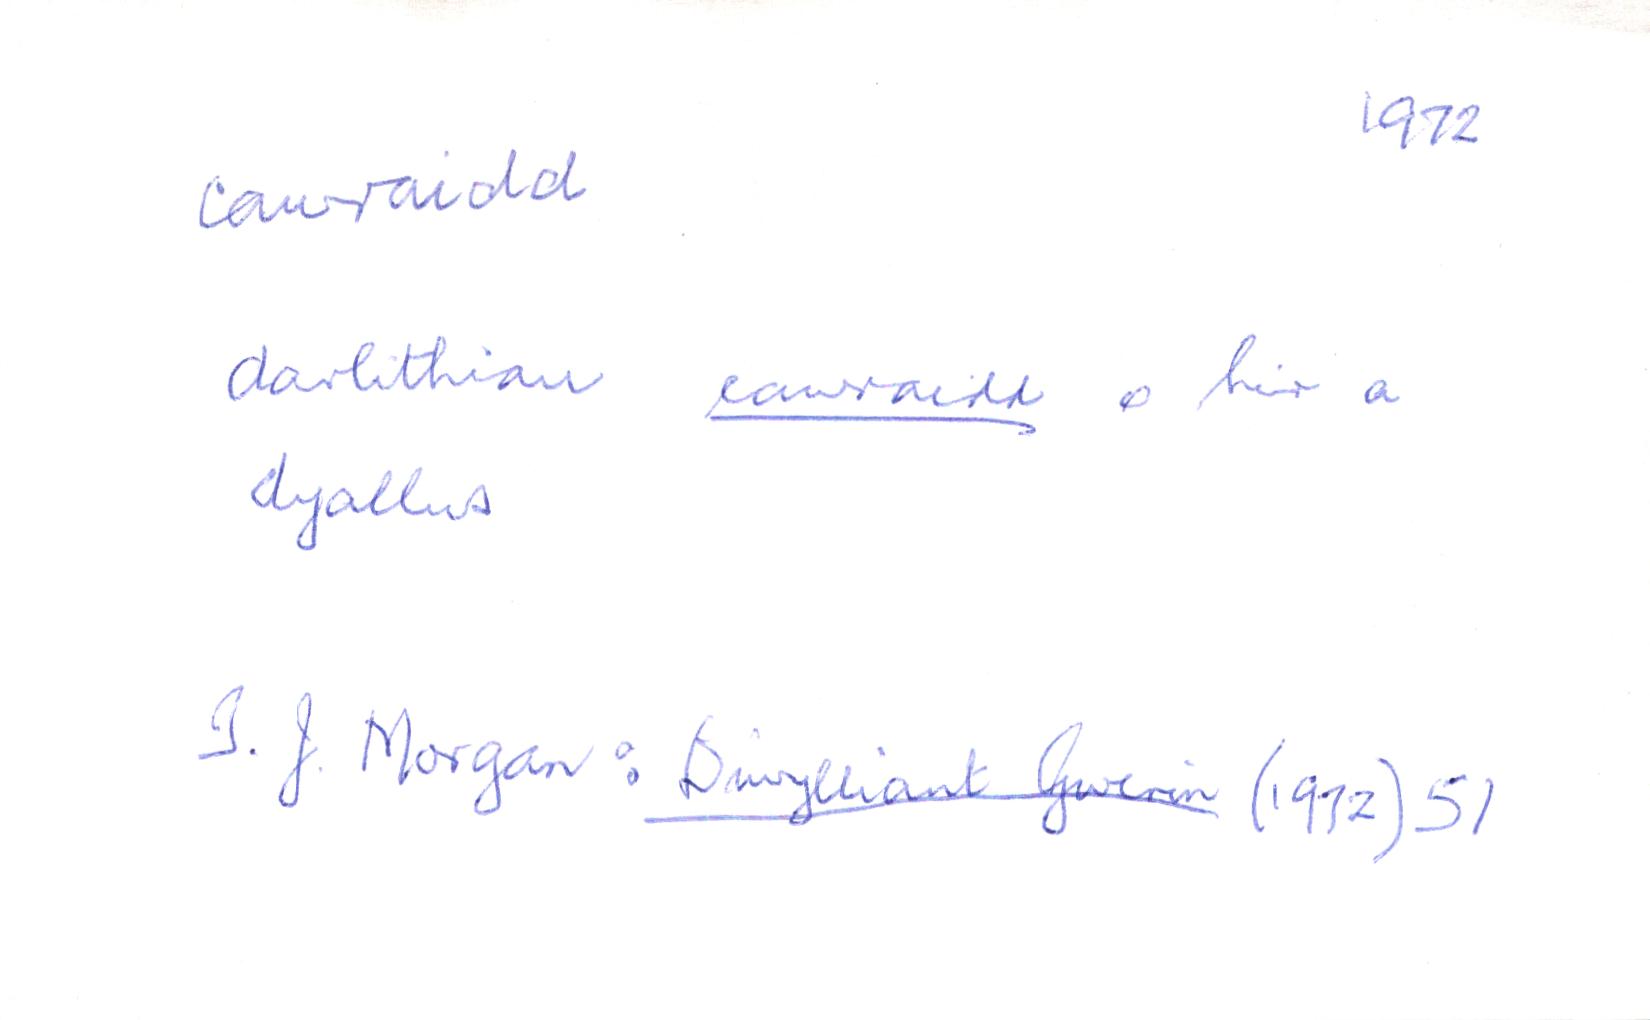 1972
cawraidd
darlithiau cawraidd o hir a
dyallus
T. J. Morgan: Diwylliant Gwerin (1972) 51